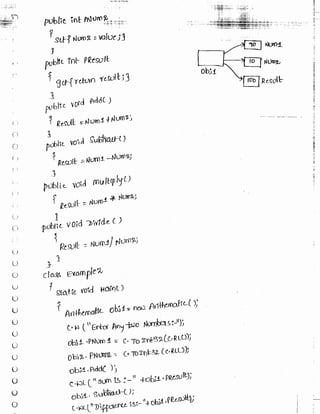 public int PNum2
{
set{ Num2 = value;}
}
public int PResult
{
get{ return result; }
}
public void Add()
{
Result = Num1 + Num2;
}
public void Subtract()
{
Result = Num1 - Num2;
}
public void multiply()
{
Result = Num1 * Num2;
}
public void Divide()
{
Result = Num1/Num2;
}
}
class Example2
{
Static void Main()
{
Arithematic Obj1 = new Arithematic();
C.W ("Enter Any two Numbers:-");
Obj1.PNum1 = C. ToInt32(C.RL());
C. ToInt32(C.RL());
Obj1.Add();
C.W("Sum is :-" +Obj1.PResult);
Obj1.Subtract();
C.W("Difference is:-"+Obj1.PResult);
90 Num1
10 Num2
Obj1
100 Result